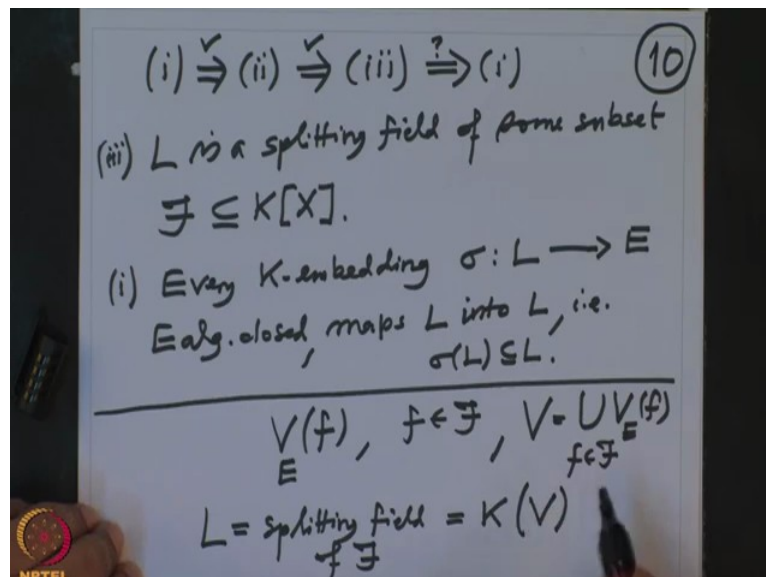 (i) ⇒ (ii) ⇒ (iii) ?⇒ (i)
10
(iii) L is a splitting field of some subset
F ⊆ K[X].
(i) Every K-embedding σ: L ⟶ E
E alg. closed, maps L into L, i.e.
σ(L) ⊆ L.
V_E(f), f ∈ F, V = ∪_{f∈F} V_E(f)
L = splitting field = K(V)
of F
NPTEL